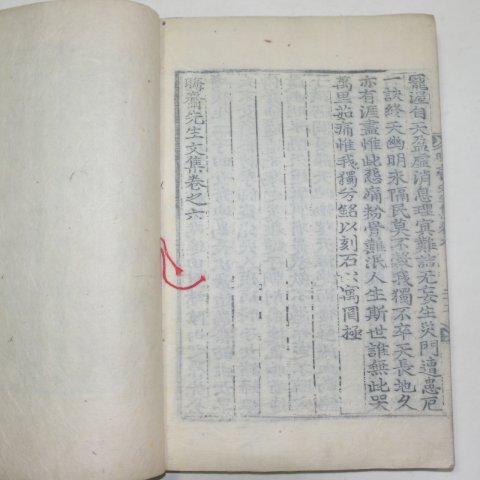 寵自天盈虛消息理實難詰无妄生災門遭愚厄
一訣終天幽明永隔民莫不穀我獨不卒天長地久
亦有涯盡惟此悲痛粉骨難泯人生斯世誰無此哭
萬里茹痛惟我獨兮銘以刻石以寓罔極
晦齋先生文集卷之六